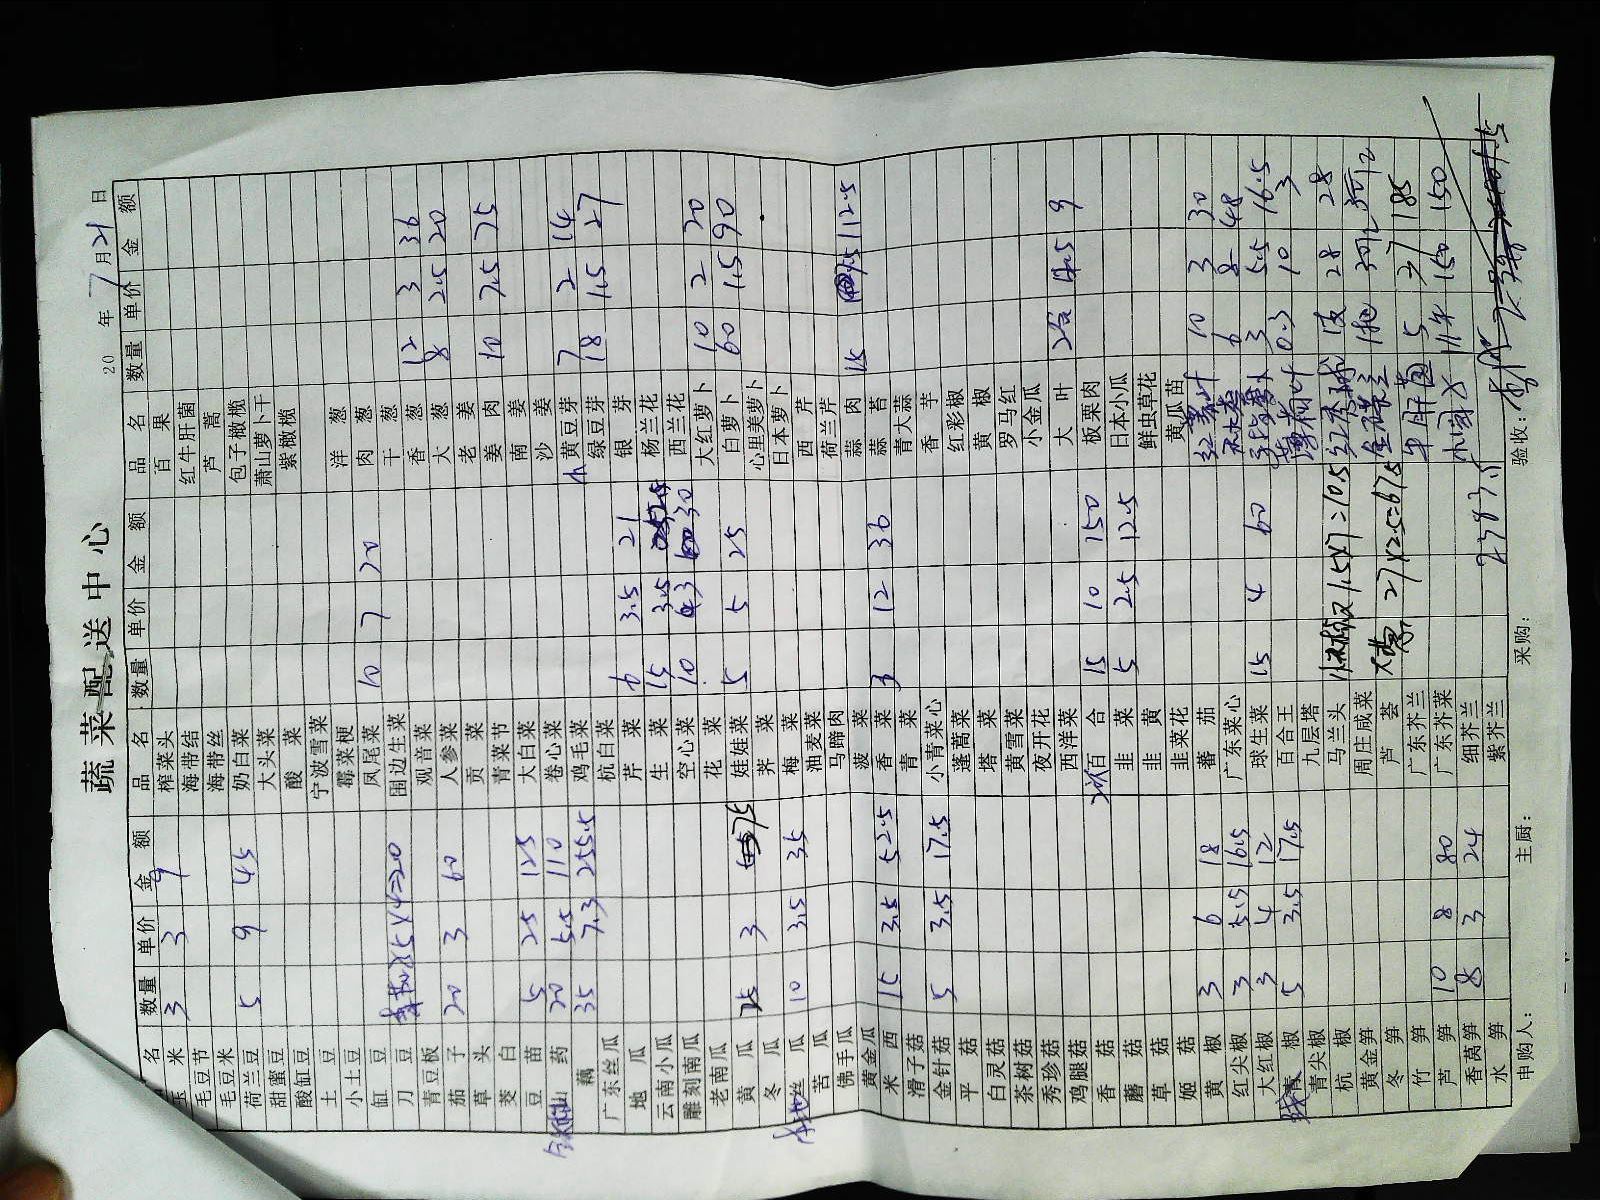 蔬菜配送中心
20 年 7 月 21 日
名 数量 单价 金 额
玉 米 3 3 9
毛豆节
毛豆米
荷兰豆 5 9 45
甜蜜豆
酸缸豆
土 豆
小土豆
缸 豆
刀 豆 5×4=20
青豆板
茄 子 20 3 60
草 头
茭 白
豆 苗 5 25 125
山 药 20 5.5 110
藕 35 7.3 255.5
广东丝瓜
地 瓜
云南小瓜
雕刻南瓜
老南瓜
黄 瓜 25 3 75
冬 瓜
本地丝 瓜 10 3.5 35
苦 瓜
佛手瓜
黄金瓜
米 西 15 3.5 52.5
滑子菇
金针菇 5 3.5 17.5
平 菇
白灵菇
茶树菇
秀珍菇
鸡腿菇
香 菇
蘑 菇
草 菇
姬 菇
黄 椒 3 6 18
红尖椒 3 5.5 16.5
大红椒 3 4 12
线青 椒 5 3.5 17.5
青尖椒
杭 椒
黄金笋
冬 笋
竹 笋
芦 笋 10 8 80
香莴笋 8 3 24
水 笋
品 名 数量 单价 金 额
榨菜头
海带结
海带丝
奶白菜
大头菜
酸 菜
宁波雪菜
霉菜梗
凤尾菜 10 7 70
围边生菜
观音菜
人参菜
贡 菜
青菜节
大白菜
卷心菜
鸡毛菜
杭白菜
芹 菜 6 3.5 21
生 菜 15 3.5
空心菜 10 3 30
花 菜
娃娃菜 5 5 25
荠 菜
梅 菜
油麦菜
马蹄肉
菠 菜
香 菜 3 12 36
青 菜
小青菜心
蓬蒿菜
塔 菜
黄雪菜
夜开花
西洋菜
百 合 15 10 150
韭 菜 5 2.5 12.5
韭 黄
韭菜花
蕃 茄
广东菜心
球生菜 15 4 60
百合王
九层塔
马兰头 1.5×7=10.5
周庄咸菜
芦 荟 27×2.5=67.5
广东芥兰
广东芥菜
细芥兰
紫芥兰 2787.5
品 名 数量 单价 金 额
百 果
红牛肝菌
芦 蒿
包子橄榄
萧山萝卜干
紫橄榄
洋 葱
肉 葱
干 葱
香 葱 12 3 36
大 葱 8 2.5 20
老 姜
姜 肉 10 7.5 75
南 姜
沙 姜
黄豆芽 7 2 14
绿豆芽 18 1.5 27
银 芽
杨兰花
西兰花
大红萝卜 10 2 20
白萝卜 60 1.5 90
心里美萝卜
日本萝卜
西 芹
荷兰芹
蒜 肉 15 7.5 112.5
蒜 苔
青大蒜
香 芋
红彩椒
黄 椒
罗马红
小金瓜
大 叶 2盒 4.5 9
板栗肉
日本小瓜
鲜虫草花
黄瓜苗
10 3 30
6 8 48
3 5.5 16.5
薄荷叶 0.3 10 3
28 28
12
牛肝菌 5 37 185
150 150
申购人: 主厨: 采购: 验收: